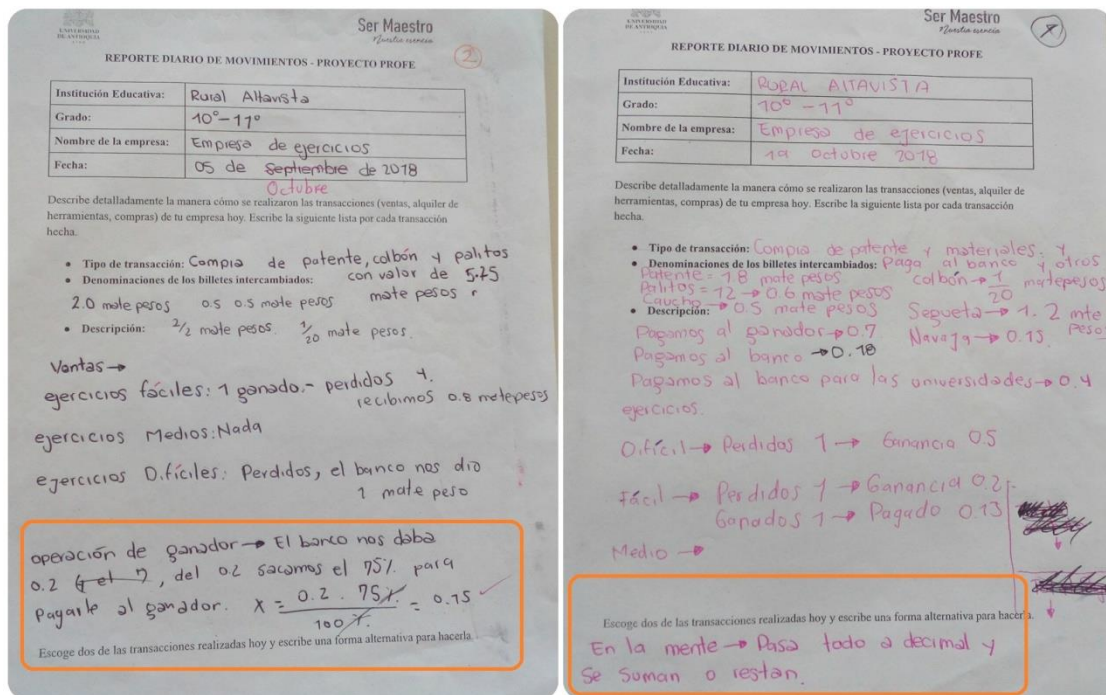 UNIVERSIDAD
DE ANTIOQUIA
Ser Maestro
Nuestra esencia
2
REPORTE DIARIO DE MOVIMIENTOS - PROYECTO PROFE
Institución Educativa: Rural Altavista
Grado: 10° - 11°
Nombre de la empresa: Empresa de ejercicios
Fecha: 05 de Septiembre de 2018
Octubre
Describe detalladamente la manera cómo se realizaron las transacciones (ventas, alquiler de
herramientas, compras) de tu empresa hoy. Escribe la siguiente lista por cada transacción
hecha.
• Tipo de transacción: Compra de patente, colbón y palitos
• Denominaciones de los billetes intercambiados: con valor de 5.25
2.0 mate pesos 0.5 0.5 mate pesos mate pesos
• Descripción: 2/2 mate pesos. 1/20 mate pesos.
Ventas →
ejercicios fáciles: 1 ganado.- perdidos 4.
recibimos 0.8 matepesos
ejercicios Medios: Nada
ejercicios Difíciles: Perdidos, el banco nos dio
1 mate peso
operación de ganador → El banco nos daba
0.2, del 0.2 sacamos el 75% para
Pagarle al ganador. X = 0.2 . 75% / 100% = 0.15
Escoge dos de las transacciones realizadas hoy y escribe una forma alternativa para hacerla
UNIVERSIDAD
DE ANTIOQUIA
Ser Maestro
Nuestra esencia
REPORTE DIARIO DE MOVIMIENTOS - PROYECTO PROFE
Institución Educativa: RURAL AlTAVISTA
Grado: 10° - 11°
Nombre de la empresa: Empresa de ejercicios
Fecha: 19 Octubre 2018
Describe detalladamente la manera cómo se realizaron las transacciones (ventas, alquiler de
herramientas, compras) de tu empresa hoy. Escribe la siguiente lista por cada transacción
hecha.
• Tipo de transacción: Compra de patente y materiales. Y
• Denominaciones de los billetes intercambiados: Paga al banco y otros
Patente = 1.8 mate pesos colbón → 1/20 matepesos
Palitos = 12 → 0.6 mate pesos
Caucho → 0.5 mate pesos Segueta → 1.2 mte
• Descripción: Pesos
Pagamos al ganador → 0.7 Navaja → 0.15
Pagamos al banco → 0.18
Pagamos al banco para las universidades → 0.4
ejercicios.
Difícil → Perdidos 1 → Ganancia 0.5
Fácil → Perdidos 1 → Ganancia 0.2
Ganados 1 → Pagado 0.13
Medio →
Escoge dos de las transacciones realizadas hoy y escribe una forma alternativa para hacerla.
En la mente → Pasa todo a decimal y
se suman o restan.